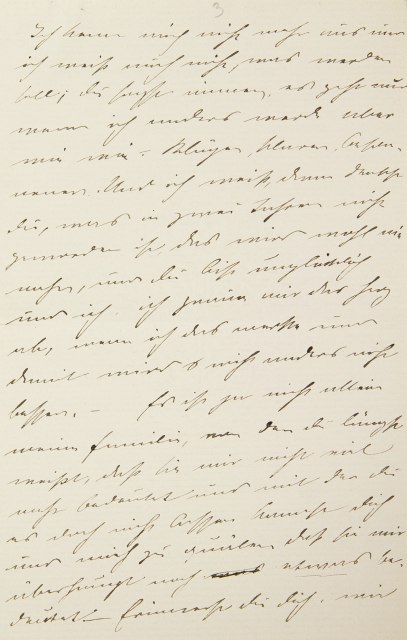 3
Ich kenne mich nicht mehr aus und
ich weiß auch nicht, was werden
soll; du sagst immer, es geht nur
wenn ich anders werde aber
wie – Klüger, klarer,
Und ich weiß, dann denkst
du, was in zwei Jahren nicht
geworden ist, das wird wohl nie
mehr, und du bist unglücklich
und ich, ich gräme mir das Herz
ab, wenn ich das merke und
damit wird's nicht anders nicht
besser. – Es ist ja nicht allein
meine Familie, von der du längst
weißt, daß sie mir nicht viel
mehr bedeutet und mit der du
es doch nicht lassen kannst dich
und mich zu quälen, daß sie mir
überhaupt noch etwas be-
deutet – Erinnerst du dich, wie